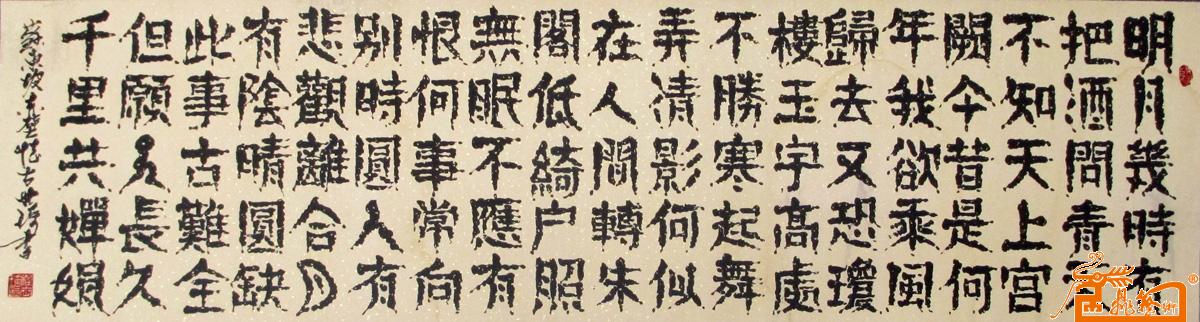 明月幾時有
把酒問青天
不知天上宮
闕今昔是何
年我欲乘風
歸去又恐瓊
樓玉宇高處
不勝寒起舞
弄清影何似
在人間轉朱
閣低綺户照
無眠不應有
恨何事常向
别時圓人有
悲觀離合月
有陰晴圓缺
此事古難全
但願人長久
千里共嬋娟
蘇東坡